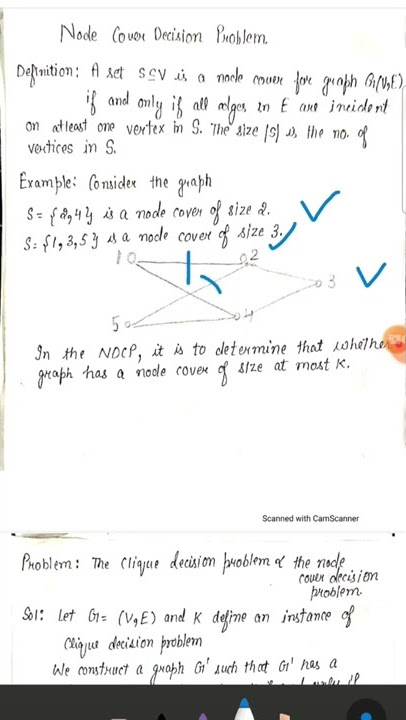 Node Cover Decision Problem.
Definition: A set S⊆V is a node cover for graph G(V,E)
if and only if all edges in E are incident
on atleast one vertex in S. The size |S| is the no. of
vertices in S.
Example: Consider the graph
S = {2,4} is a node cover of size 2.
S = {1,3,5} is a node cover of size 3.
1 2
3
5 4
In the NDCP, it is to determine that whether
graph has a node cover of size at most K.
Scanned with CamScanner
Problem: The Clique decision problem α the node
cover decision
problem.
Sol: Let G = (V,E) and K define an instance of
Clique decision problem
We construct a graph G' such that G' has a
if